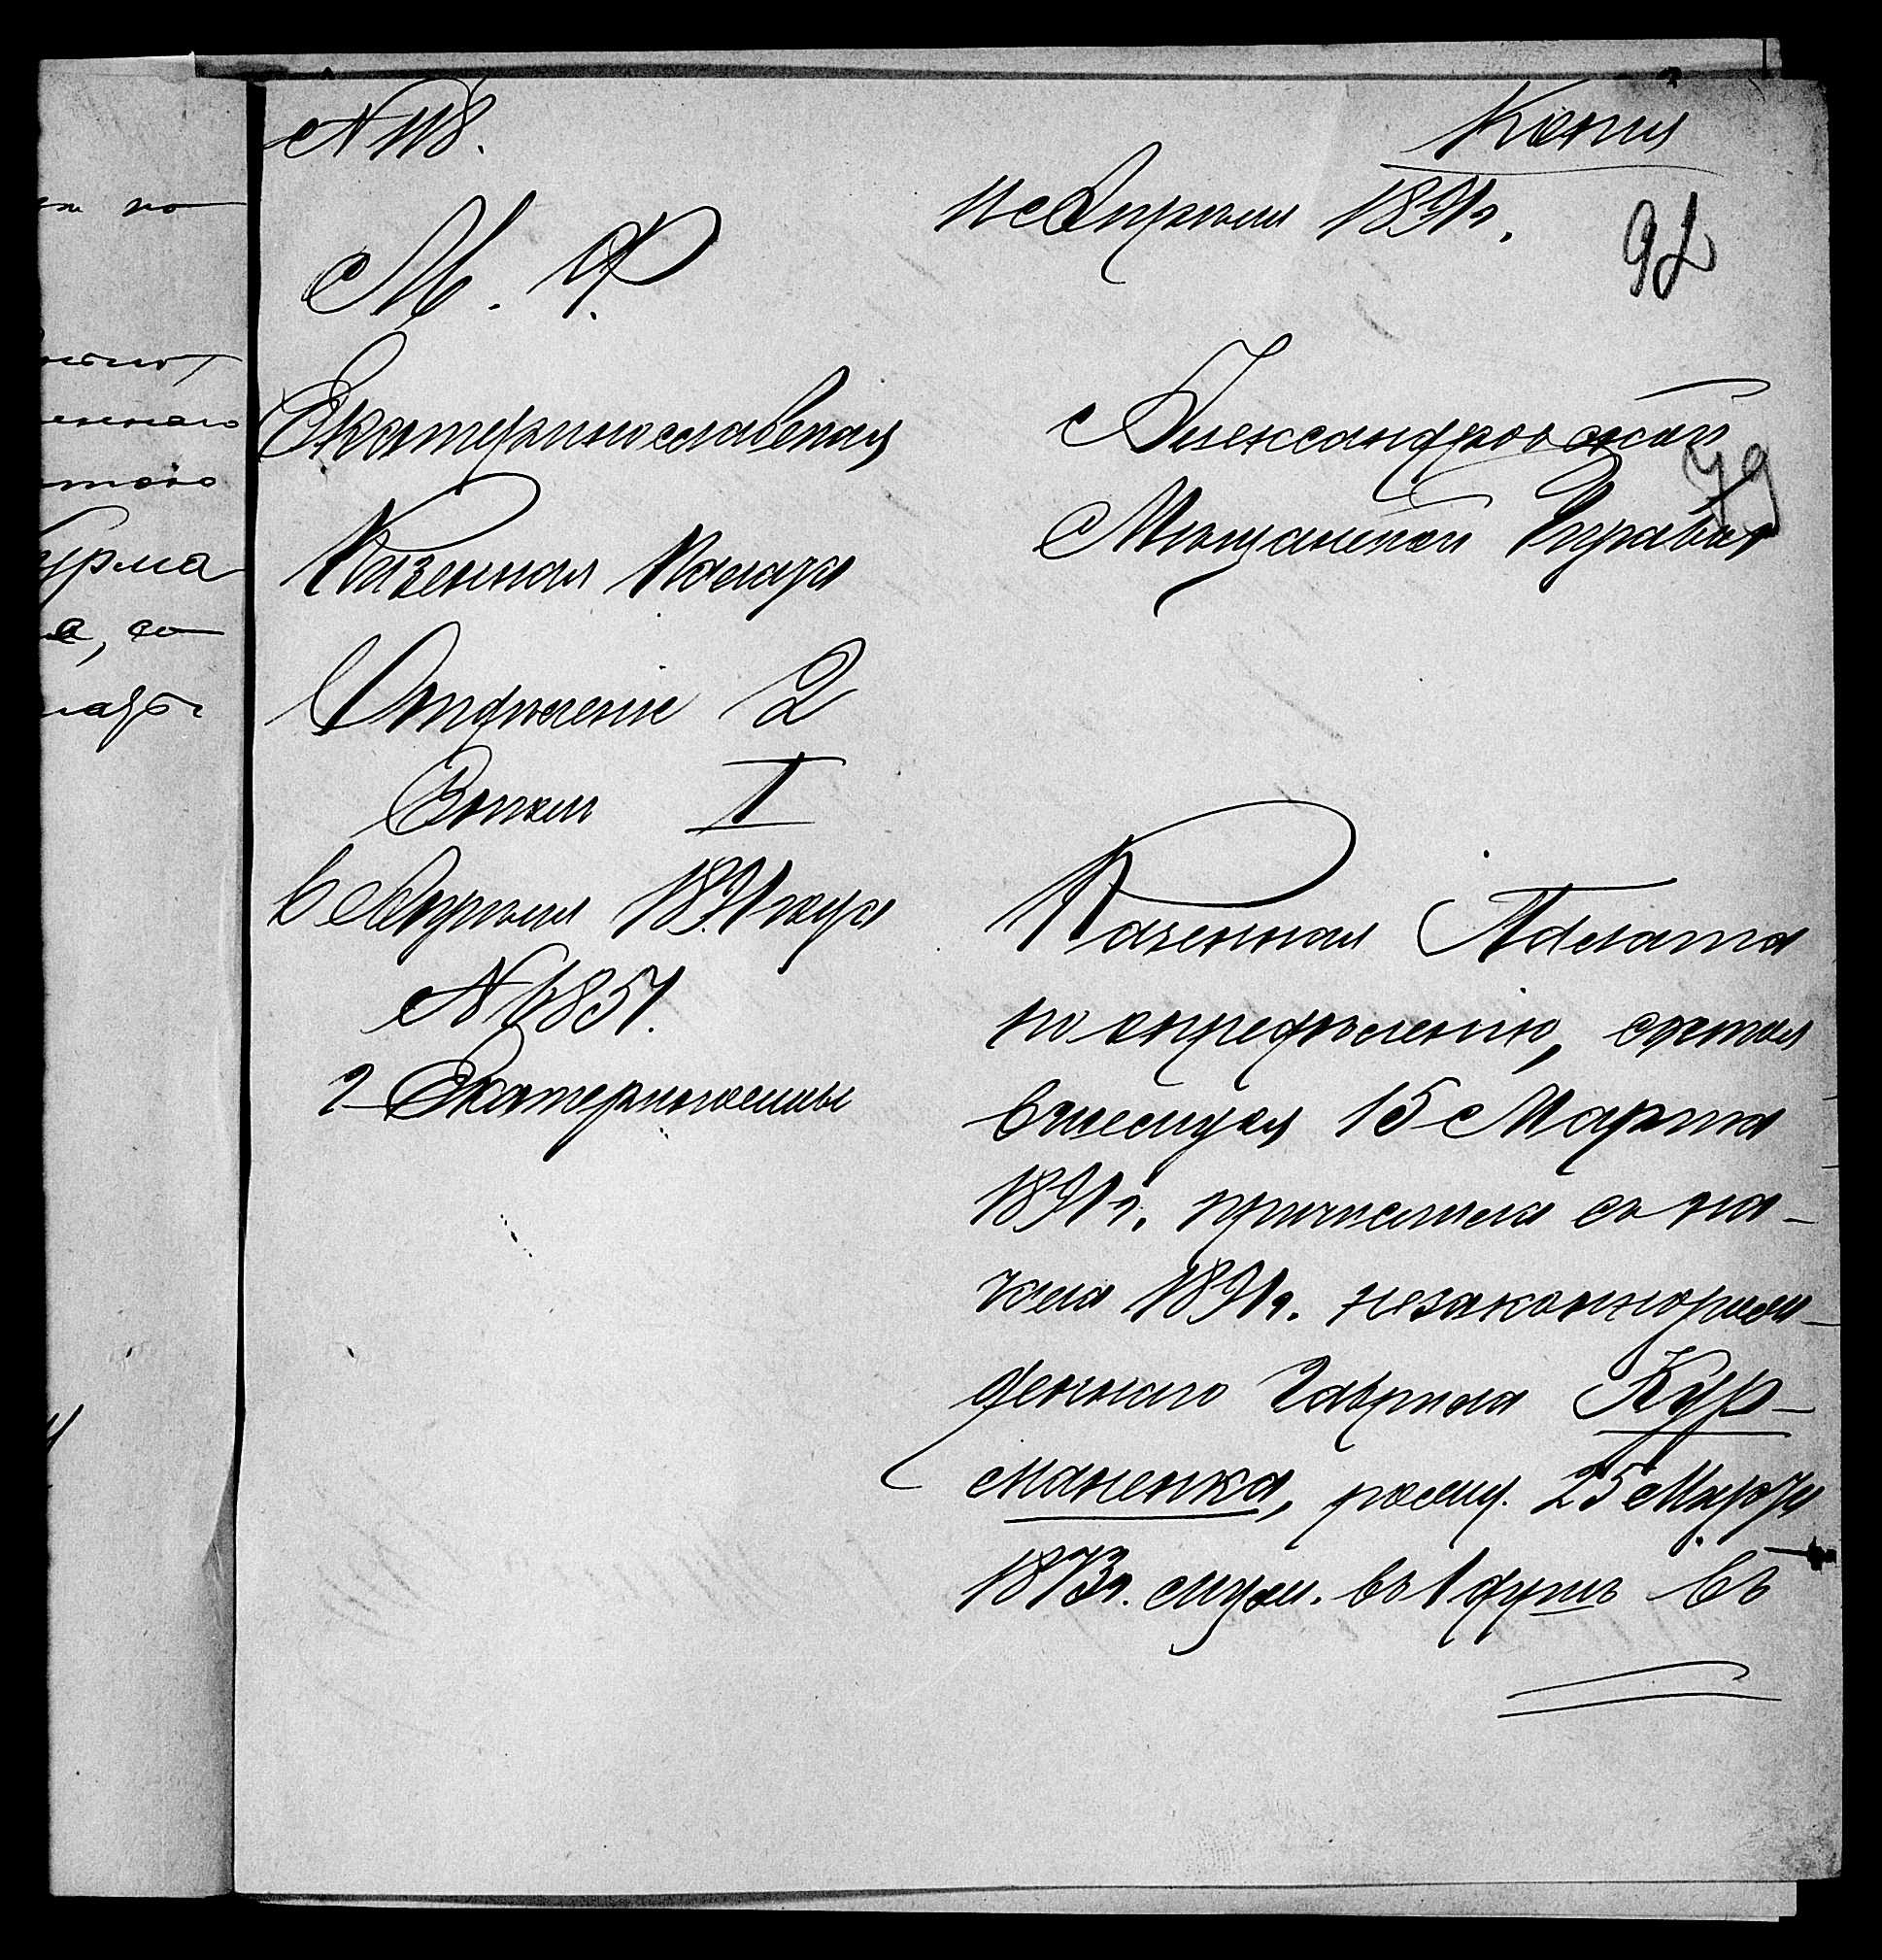 № 118.
Копия
11 Апрѣля 1891 г.
М. Ф.
Екатеринославская
Казенная Палата
Отдѣленіе 2
Столъ I
6 Апрѣля 1891 года
№ 6851.
г. Екатеринославъ
Александровской
Мѣщанской Управѣ
79
Казенная Палата
по опредѣленію, состояв
15 Марта
1891 г. причислила съ на-
чала 1891 г. незаконнорож-
деннаго Гаврила Кур-
маненка, рожд. 25 Марта
1873 г. въ 1 душѣ въ
по
маго
урма
а, со